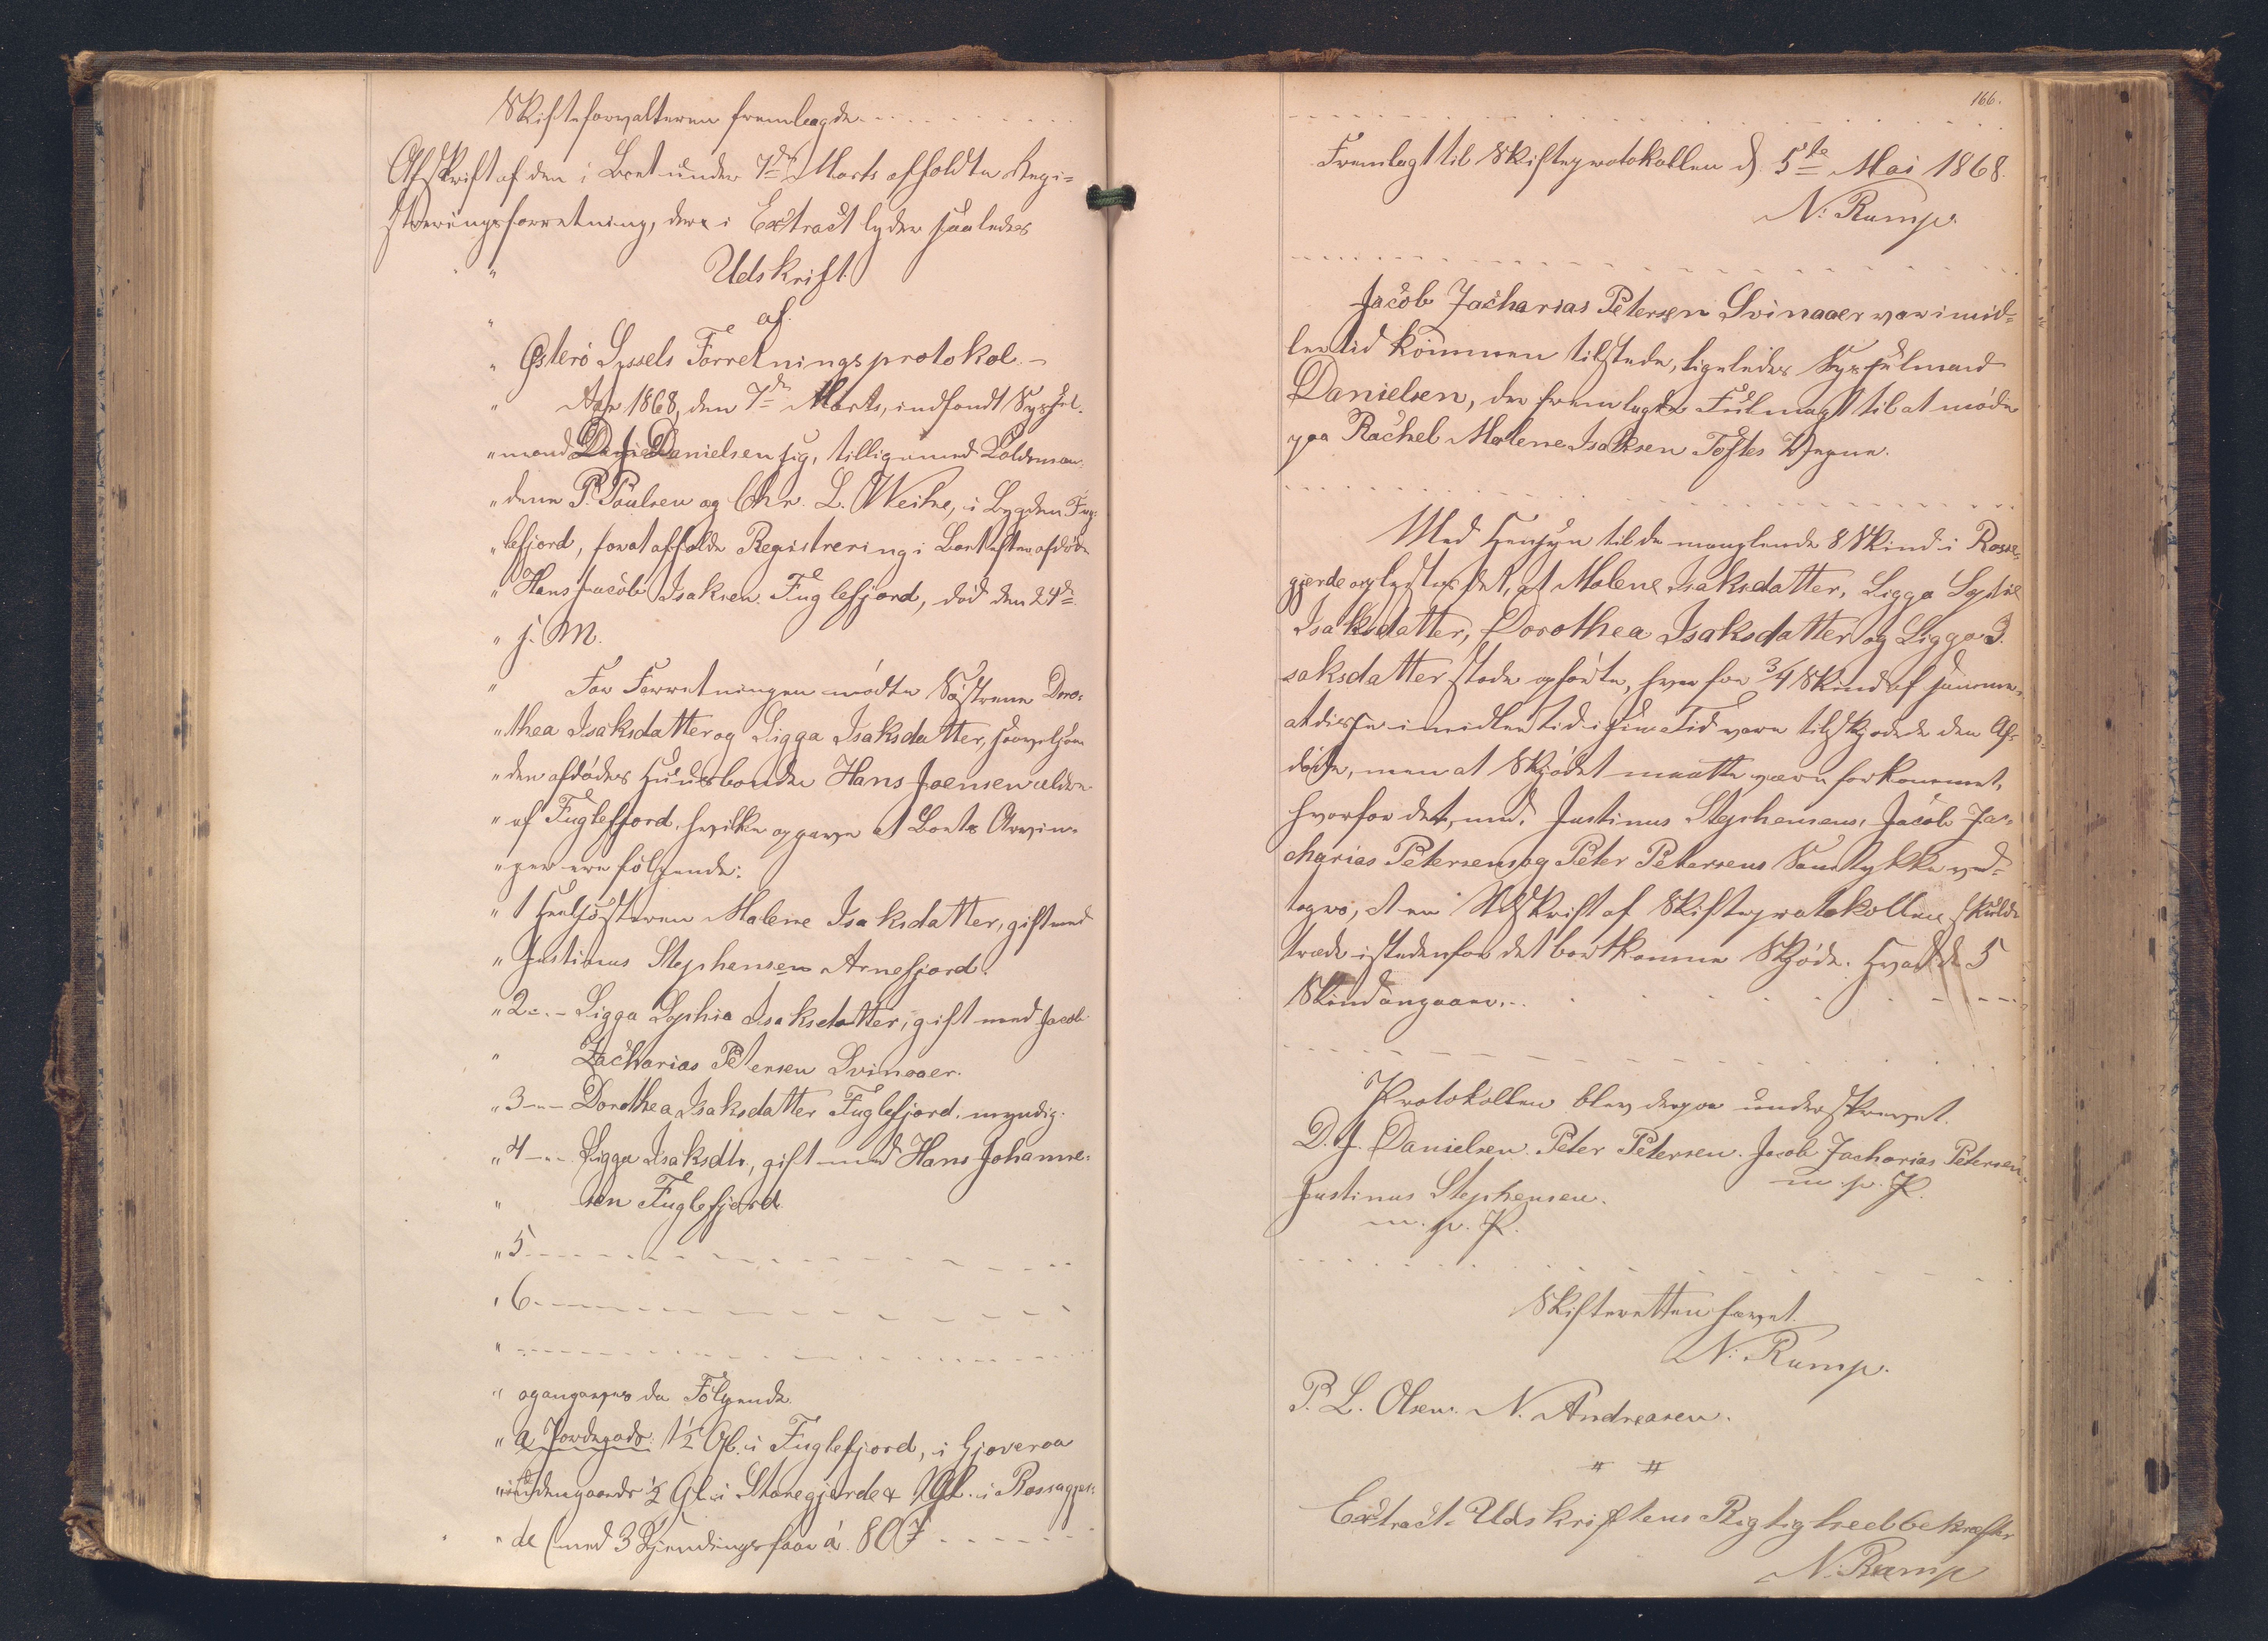 Skifteforvalteren fremlagde
Afskrift af den i Boet under 7de Marts afholdte Regi=
streringsforretning, der i Extract lyder saaledes
" Udskrift
" af
" Østerö Syssels Forretningsprotokol. -
" Aar 1868, den 7de Marts, indfandt Syssel-
" mand Danielsen sig, tilligemed Lovdsmæn
" dene P. Poulsen og Chr. L. Weihe, i Bygden Fug-
" lefjord, for at afholde Registrering i Boet efter afdöde
" Hans Jacob Isaksen Fuglefjord, död den 24de
" j. M.
" For Forretningen mödte Söstrene Doro-
" thea Isaksdatter og Sigga Isaksdatter, saavelsom
" den afdödes Huusbonde Hans Joensen ældre
" af Fuglefjord, hvilke opgave at Boets Arvin-
" ger ere fölgende:
" 1 Heelsösteren Malene Isaksdatter, gift med
" Justinus Stephensen Arnefjord.
" 2 - " - Sigga Sophie Isaksdatter, gift med Jacob
" Zacharias Petersen Svinaaer.
" 3 - " - Dorothea Isaksdatter Fuglefjord, myndig.
" 4 - " - Sigga Isaksdtr, gift med Hans Johanne-
" sen Fuglefjord
" 5
" 6
"
" og angaves da Fölgende
" a Jordegods: 1½ Gl. i Fuglefjord, i Gjoveraa
" indengaards ½ Gl. i Storegjerde & 1 Gl. i Rossagjer-
" de (med 3 Kjendingsfaar á 80 f
166.
Fremlagt til Skifteprotokollen d. 5te Mai 1868.
N: Rump.
Jacob Zacharias Petersen Svinaaer var imid-
lertid kommen tilstede, ligeledes Sysselmand
Danielsen, der fremlagde Fuldmagt til at möde
paa Rachel Malene Isaksen Toftes Vegne.
Med Hensyn til de manglende 8 Skind i Rosse-
gjerde oplystes det, at Malene Isaksdatter, Sigga Sophie
Isaksdatter, Dorothea Isaksdatter og Sigga I-
saksdatter stode opförte, hver for ¾ Skind af samme,
at disse imidlertid i sin Tid vare tilskjödede den Af-
döde, men at Skjödet maatte være forkommet,
hvorfor det, med Justinus Stephensens, Jacob Za-
charias Petersens og Peter Petersens Samtykke ved-
toges, at en Udskrift af Skifteprotokollen skulde
træde istedenfor det bortkomne Skjöde. Hvad de 5
Skind angaaer
Protokollen blev derpaa underskrevet.
D. J. Danielsen. Peter Petersen. Jacob Zacharias Petersen
m. p. P.
Justinus Stephensen.
m. p. P.
Skifteretten hævet.
N: Rump.
P. L. Olsen. N. Andreasen.
Extract-Udskriftens Rigtighed bekræfter
N. Rump